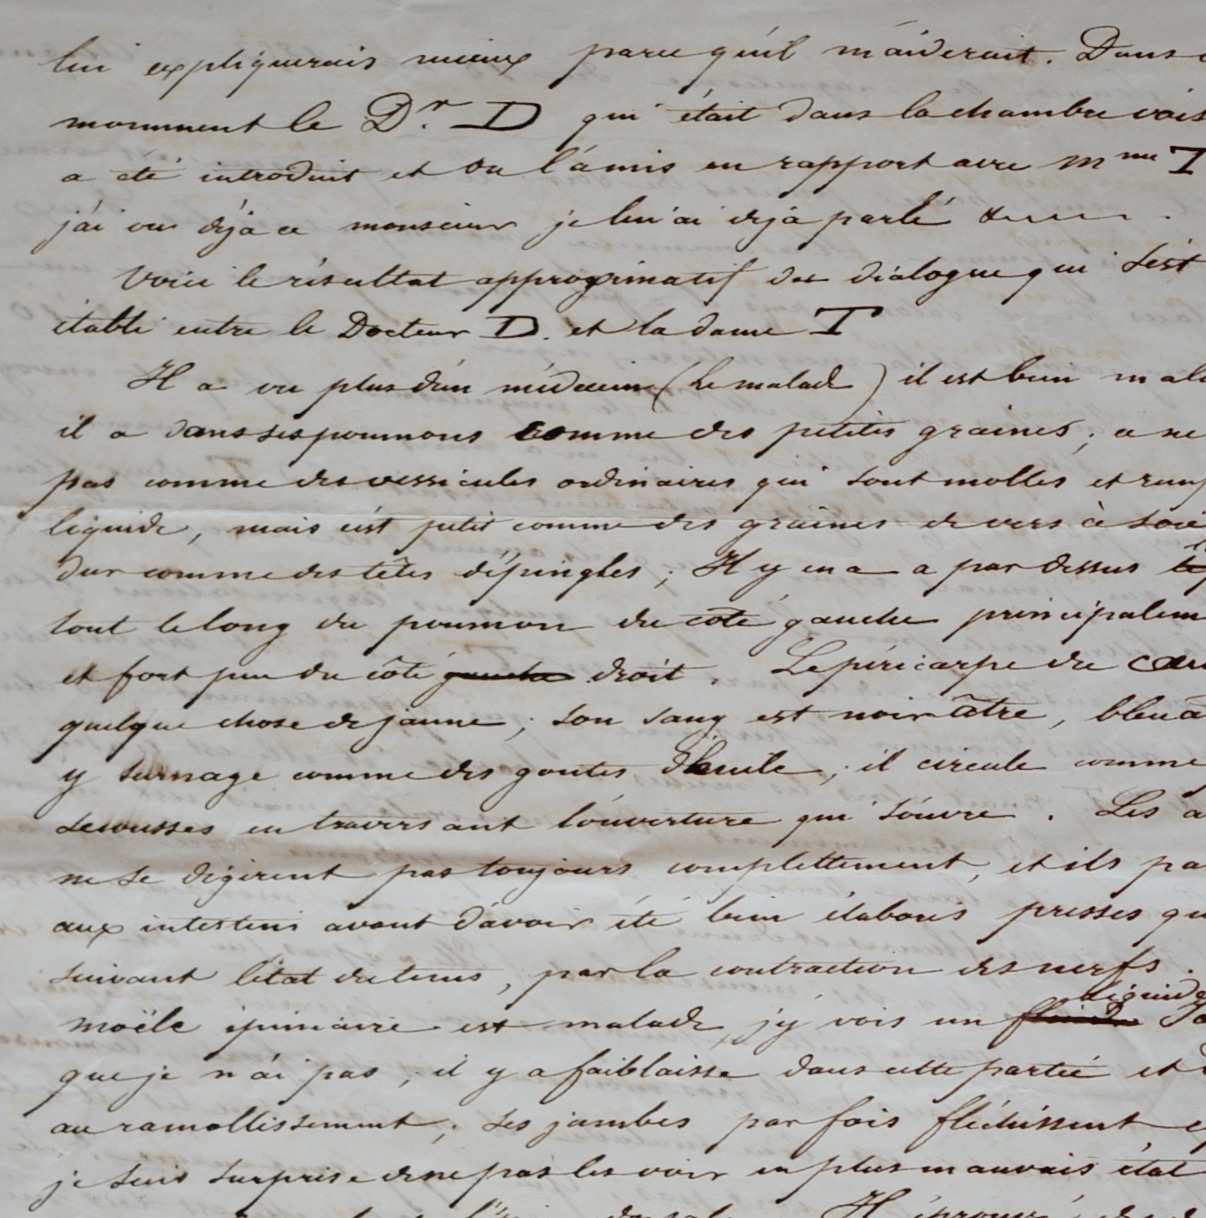 lui expliquerais mieux parce qu'il m'aiderait. Dans c
momment le Dr. D qui était dans la chambre vois
a été introduit et on l'a mis en rapport avec Mme T
j'ai vu déjà ce monsieur je lui ai déjà parlé
Voici le résultat approximatif du dialogue qui s'est
établi entre le Docteur D. et la dame T
Il a vu plus d'un médecin (Le malade) il est bien mal
il a dans ses poumons comme des petites graines; ce ne
pas comme des vessicules ordinaires qui sont molles et remp
liquide, mais c'est petit comme des graines de vers à soie
dur comme des têtes d'épingles; Il y en a a par dessus
tout le long du poumon du coté gauche principalem
et fort peu du côté gauche droit. Le péricarpe du cœu
quelque chose de jaune; son sang est noirâtre, bleuâ
y surnage comme des goutes d'huile; il circule comme
secousses en traversant l'ouverture qui s'ouvre. Les a
ne se digèrent pas toujours complettement, et ils pa
aux intestins avant d'avoir été bien élaborés pressés qu
suivant l'état du tems, par la contraction des nerfs.
liquide
moële épiniaire est malade, j'y vois un fluide
que je n'ai pas; il y a faiblaisse dans cette partie et d
au ramollissement; ses jambes par fois fléchissent e
je suis surprise de ne pas les voir en plus mauvais état
Il éprouve